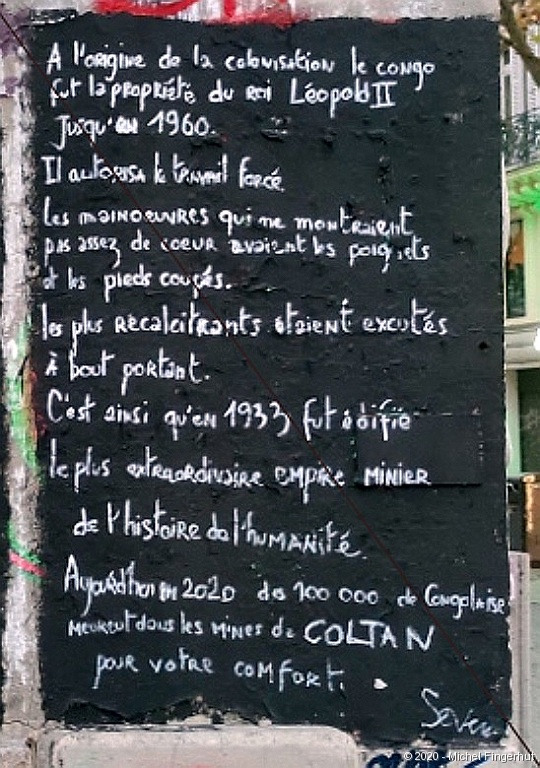 A l'origine de la colonisation le congo
fut la propriété du roi Léopold II
Jusqu'en 1960.
Il autorisa le travail forcé.
Les mainoeuvres qui ne montraient
pas assez de coeur avaient les poignets
et les pieds coupés.
les plus recalcitrants étaient excutés
à bout portant.
C'est ainsi qu'en 1933 fut édifié
le plus extraordinaire empire MINIER
de l'histoire de l'humanité.
Aujourd'hui en 2020 des 100 000 de Congolaise
meurent dans les mines de COLTAN
pour votre comfort.
© 2020 - Michel Fingerhut